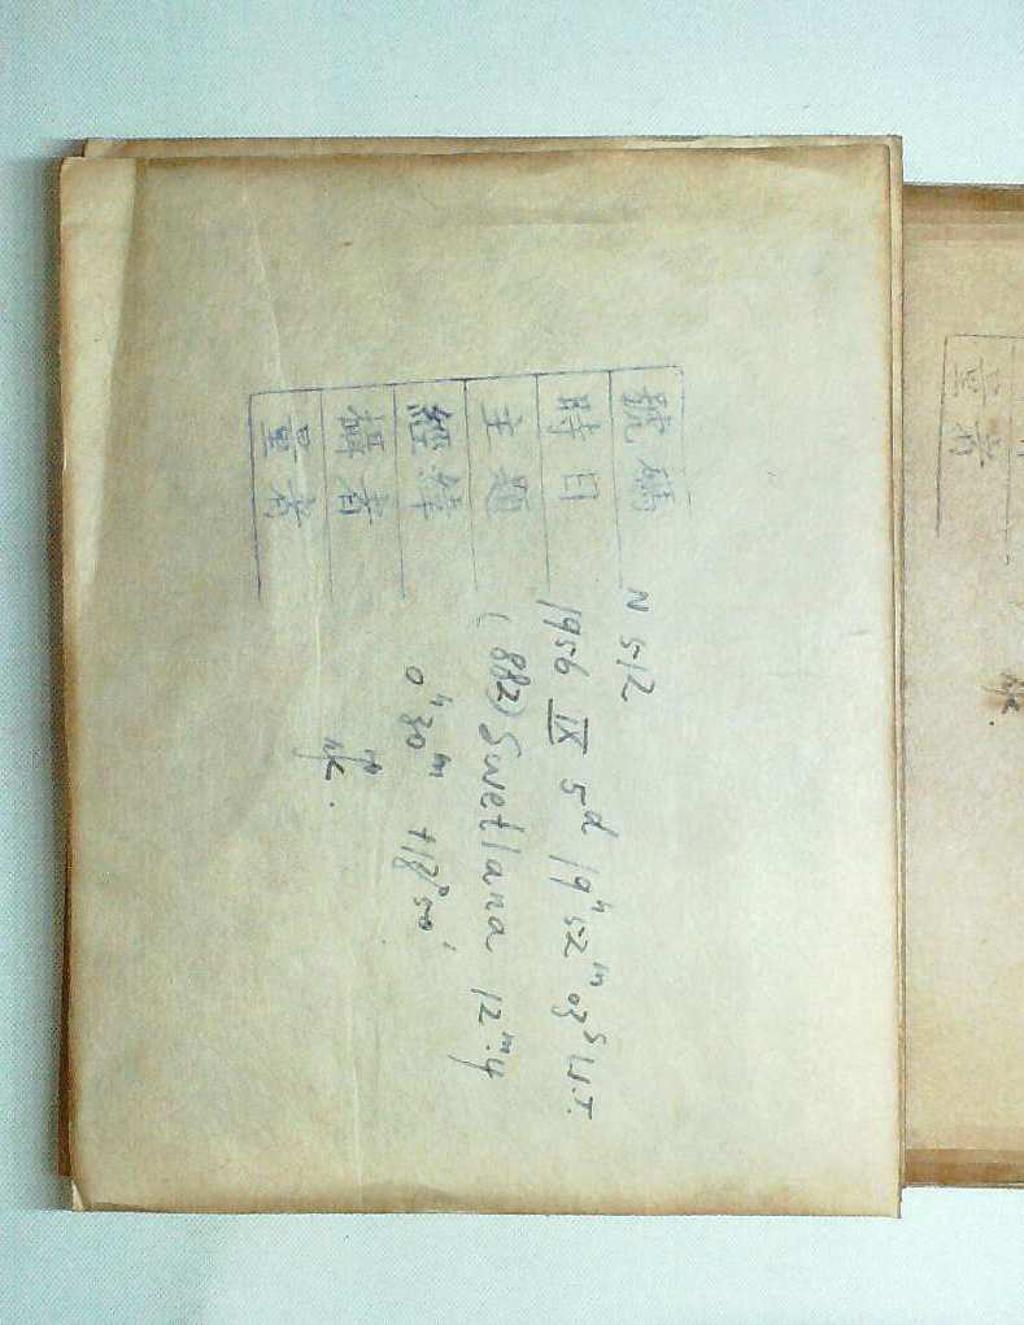 號碼 N 512
時日 1956 IX 5ᵈ 19ʰ52ᵐ03ˢ U.T.
主題 (882) Swetlana 12ᵐ.4
經緯 0ʰ30ᵐ +18°50′
攝者
量者
量者